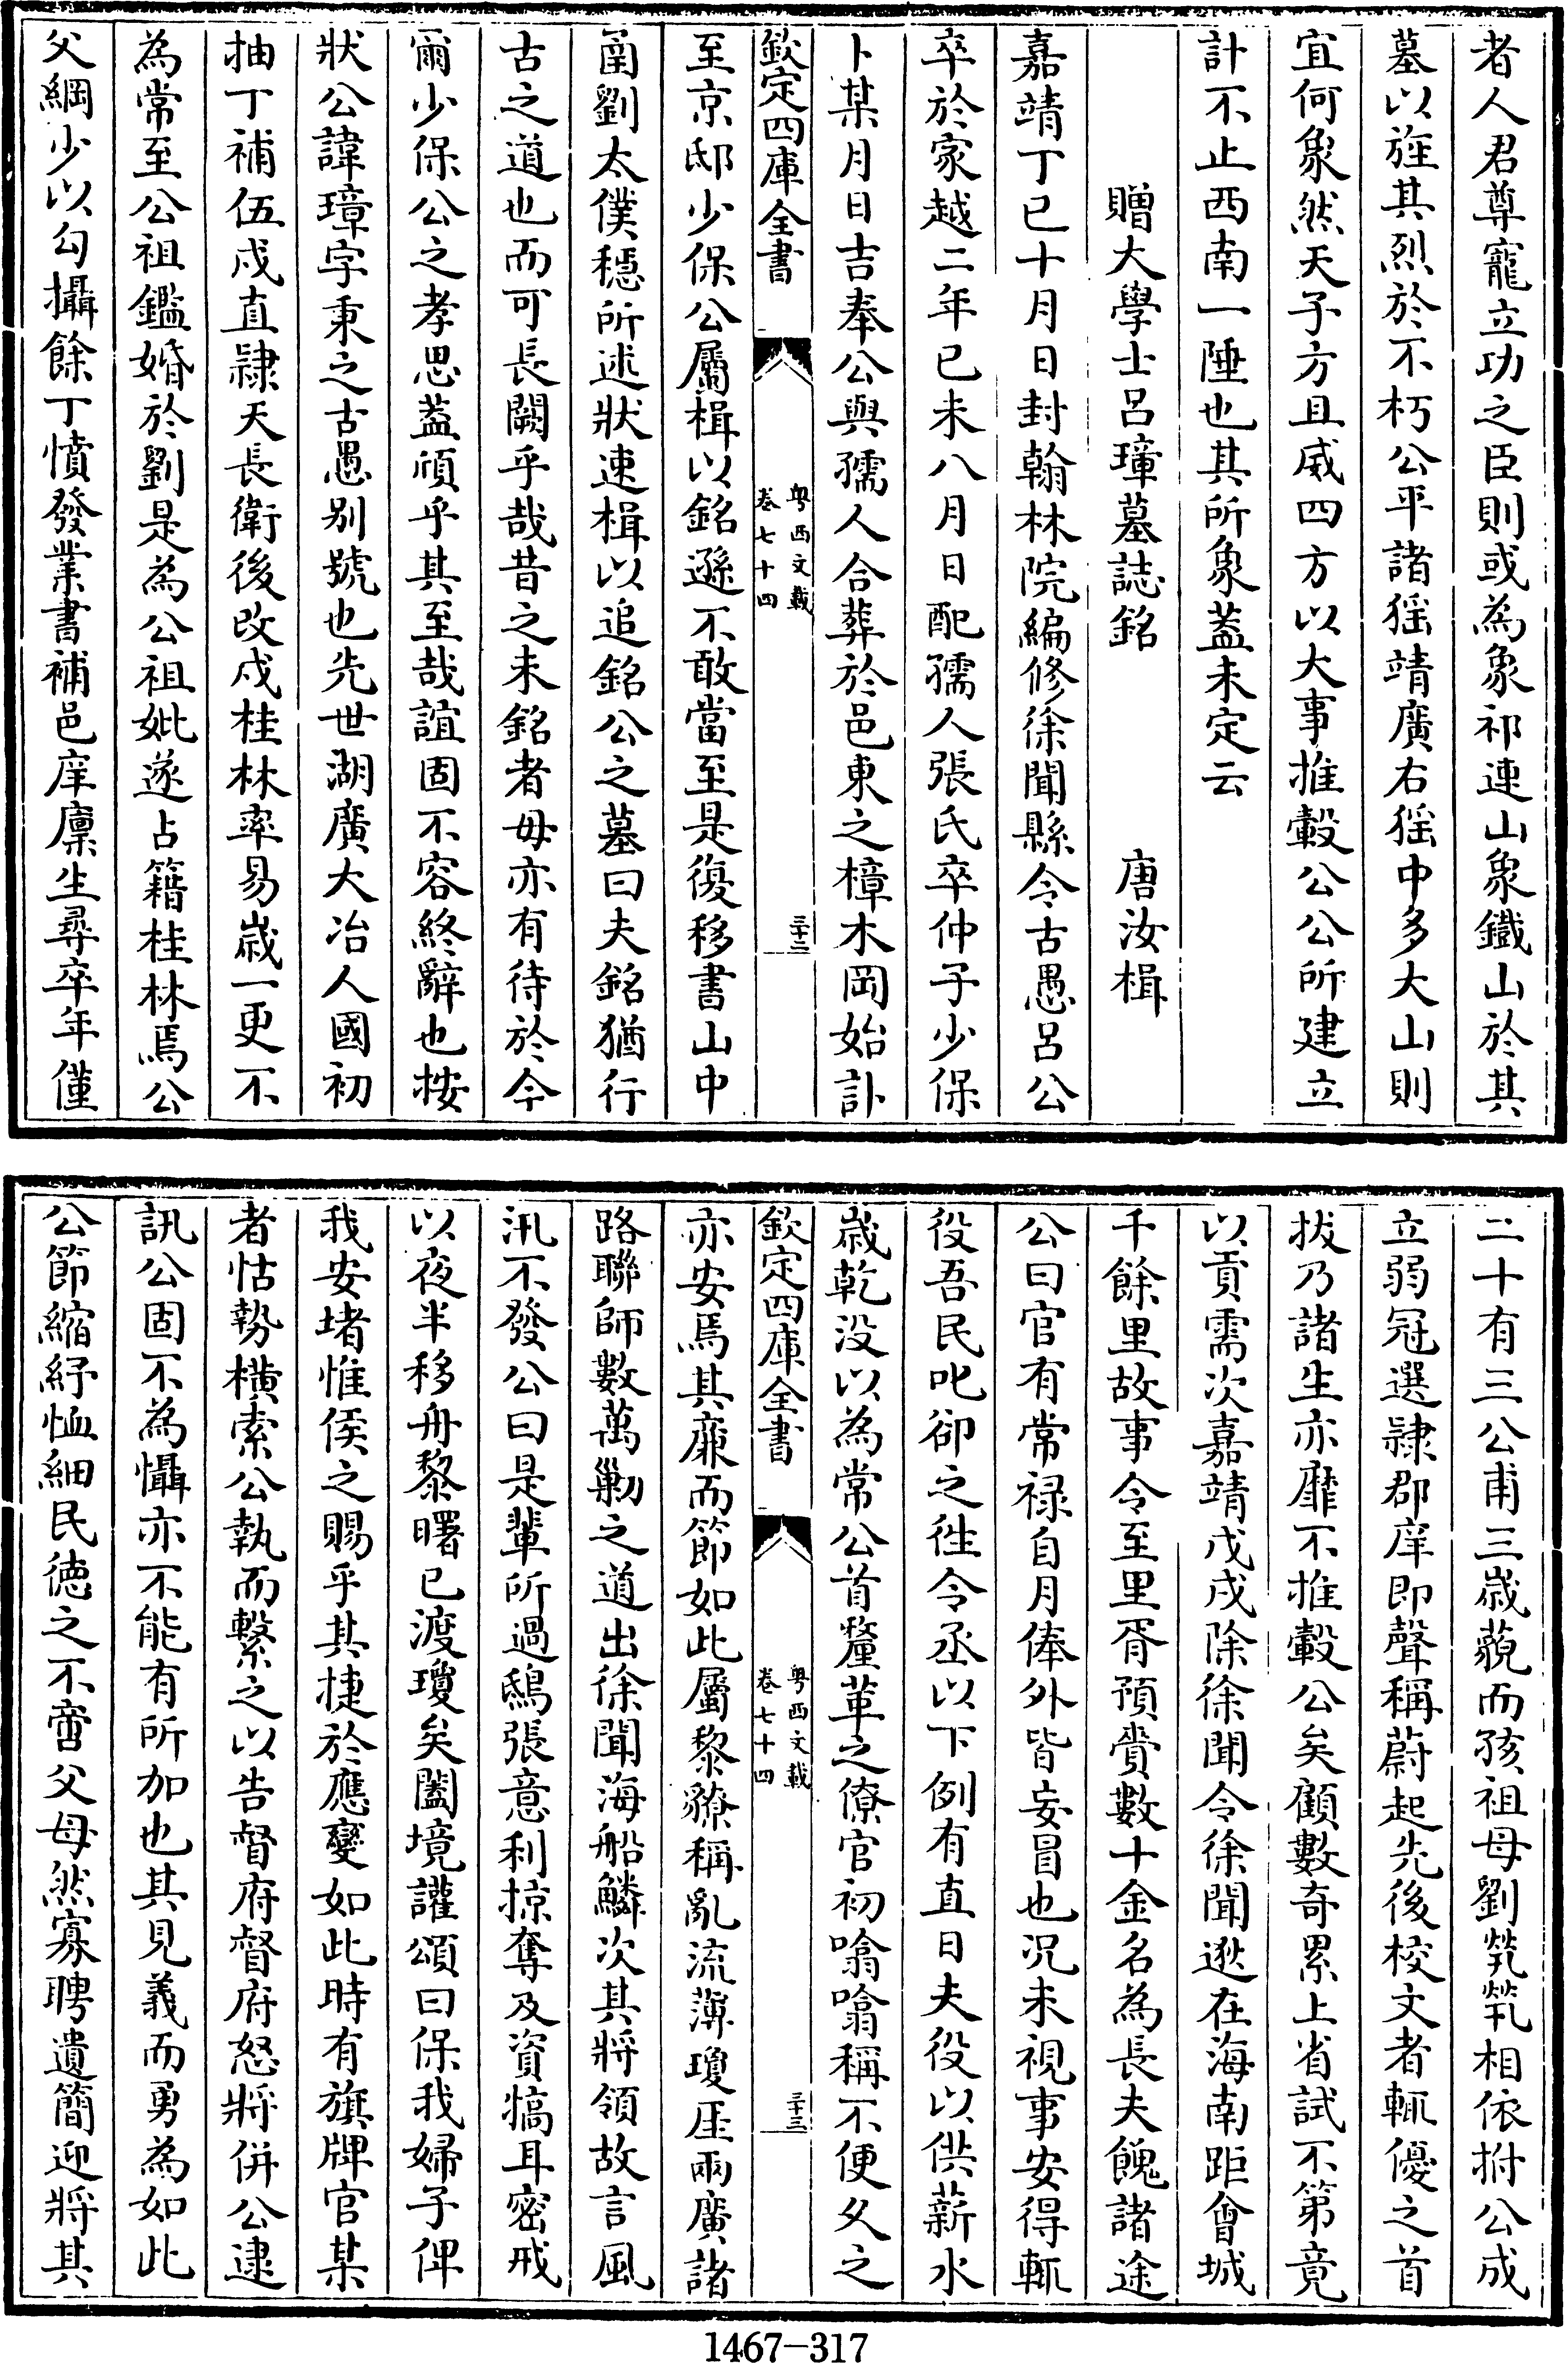 者人君尊寵立功之臣則或為象祁連山象鐵山於其
墓以旌其烈於不朽公平諸猺靖廣右猺中多大山則
宜何象然天子方且威四方以大事推轂公公所建立
計不止西南一陲也其所象蓋未定云
贈大學士呂璋墓誌銘　　唐汝楫
嘉靖丁巳十月日封翰林院編修徐聞縣令古愚呂公
卒於家越二年己未八月日配孺人張氏卒仲子少保
卜某月日吉奉公與孺人合葬於邑東之樟木岡始訃
欽定四庫全書
粤西文載
卷七十四
三十二
至京邸少保公屬楫以銘遜不敢當至是復移書山中
函劉太僕穩所述狀速楫以追銘公之墓曰夫銘猶行
古之道也而可長闕乎哉昔之未銘者毋亦有待於今
爾少保公之孝思蓋頎乎其至哉誼固不容終辭也按
狀公諱璋字秉之古愚别號也先世湖廣大冶人國初
抽丁補伍戍直隷天長衛後改戍桂林率易歲一更不
為常至公祖鑑婚於劉是為公祖妣遂占籍桂林焉公
父綱少以勾攝餘丁憤發業書補邑庠廪生尋卒年僅
二十有三公甫三歲藐而孩祖母劉煢煢相依拊公成
立弱冠選隷郡庠即聲稱蔚起先後校文者輒優之首
拔乃諸生亦靡不推轂公矣顧數奇累上省試不第竟
以貢需次嘉靖戊戌除徐聞令徐聞逖在海南距會城
千餘里故事令至里胥預賫數十金名為長夫餽諸途
公曰官有常禄自月俸外皆妄冒也况未視事安得輒
役吾民叱卻之徃令丞以下例有直日夫役以供薪水
歲乾没以為常公首釐革之僚官初噏噏稱不便久之
欽定四庫全書
粤西文載
卷七十四
三十三
亦安焉其亷而節如此屬黎獠稱亂流薄瓊厓兩廣諸
路聯師數萬勦之道出徐聞海船鱗次其將領故言風
汛不發公曰是輩所過鴟張意利掠奪及資犒耳密戒
以夜半移舟黎曙已渡瓊矣闔境讙頌曰保我婦子俾
我安堵惟侯之賜乎其捷於應變如此時有旗牌官某
者怙勢横索公執而繫之以告督府督府怒將併公逮
訊公固不為懾亦不能有所加也其見義而勇為如此
公節縮紓恤細民徳之不啻父母然寡聘遺簡迎將其
1467-317